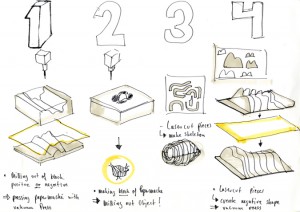 1
2
3
4
• Milling out of block,
positive or negative
⇒ pressing papermache with
vakuum press
• making block of Papermache
⇒ Milling out object!
- Lasercut pieces
↳ make sketches
• Lasercut pieces
⇒ create negative shape
⇒ vakuum press